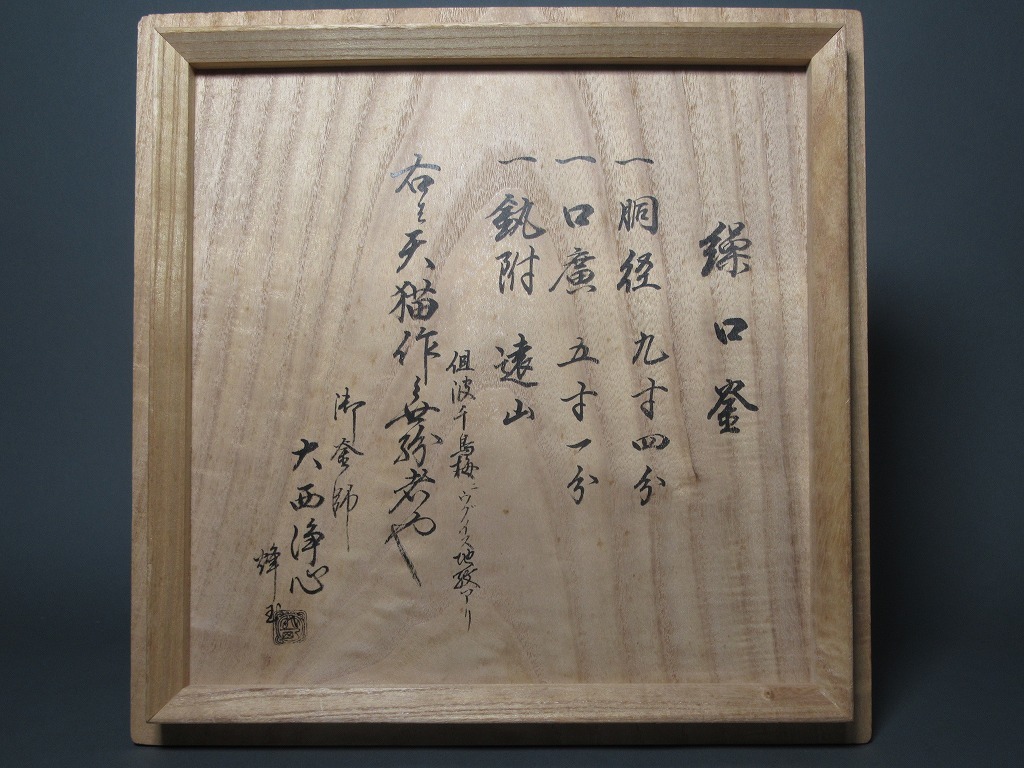 繰口釜
一胴径 九寸四分
一口廣 五寸一分
一釻附 遠山
但波千鳥梅ニウグイス地紋アリ
右之天猫作無紛者也
御釜師
大西浄心